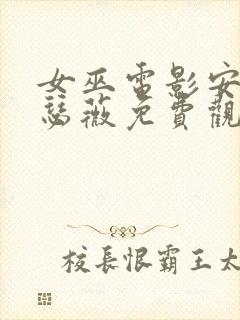 女巫電影安
瑟薇免費觀
校長恨霸王太